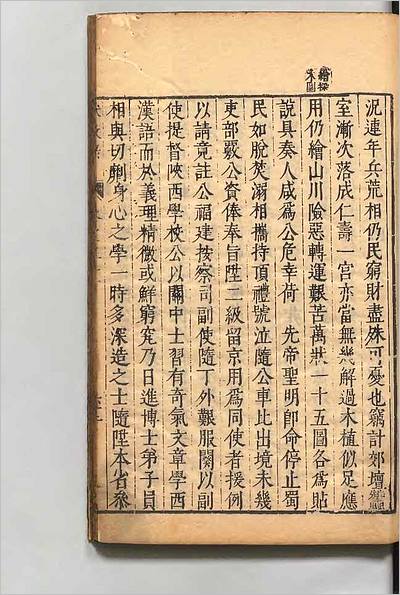 繪採木圖
況連年兵荒相仍民窮財盡殊可憂也竊計郊壇
室漸次落成仁壽一宮亦當無幾解過木植似足應
用仍繪山川險惡轉運艱苦萬狀一十五圖各爲貼
說具奏人咸爲公危幸荷 先帝聖明卽命停止蜀
民如脫焚溺相攜持頂禮號泣隨公車比出境未幾
吏部覈公資俸奉旨陞二級留京用爲同使者援例
以請竟註公福建按察司副使隨丁外艱服闋以副
使提督陝西學校公以關中士習有奇氣文章學西
漢語而於義理精微或鮮窮究乃日進博士弟子員
相與切劘身心之學一時多深造之士隨陞本省叅